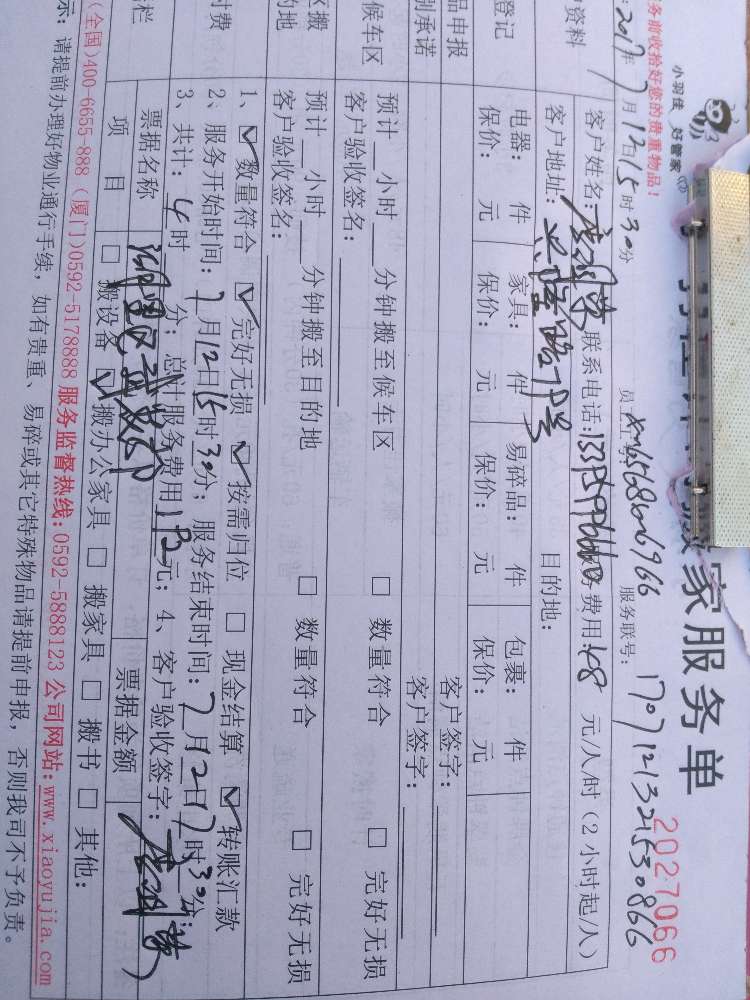 小羽佳 好管家
家服务单
2027066
务前收拾好您的贵重物品!
2017年7月12日15时30分
服务联号:
户资料
客户姓名:
联系电话:
务费用:48 元/人/时(2小时起/人)
客户地址:
目的地:
登记
电器: 件 家具: 件 易碎品: 件 包裹: 件
保价: 元 保价: 元 保价: 元 保价: 元
品申报
客户签字:
别承诺
客户签字:
候车区
预计 小时 分钟搬至候车区 □ 数量符合 □ 完好无损
客户验收签名:
区搬
的地
预计 小时 分钟搬至目的地 □ 数量符合 □ 完好无损
客户验收签名:
付费
1、☑ 数量符合 ☑ 完好无损 ☑ 按需归位 □ 现金结算 ☑ 转账汇款
2、服务开始时间:7月12日15时30分; 服务结束时间:7月12日17时30分;
3、共计:4时 分; 总计服务费用192元; 4、客户验收签字:
栏
票据名称
票据金额
项 目 □ 搬设备 ☑ 搬办公家具 □ 搬家具 □ 搬书 □ 其他:
(全国)400-6655-888 (厦门)0592-5178888 服务监督热线:0592-5888123 公司网站:www.xiaoyujia.com
示: 请提前办理好物业通行手续, 如有贵重、易碎或其它特殊物品请提前申报, 否则我司不予负责。